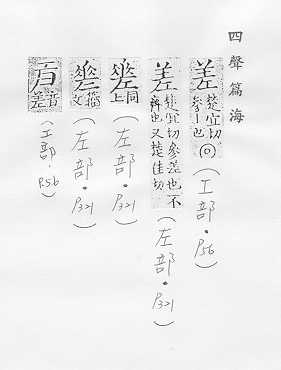 四聲篇海
差楚宜切參丨也(工部.P56)
差楚宜切參差也不齊也又楚佳切(左部.P321)
同上(左部.P321)
籀文(左部.P321)
音差(工部.P56)